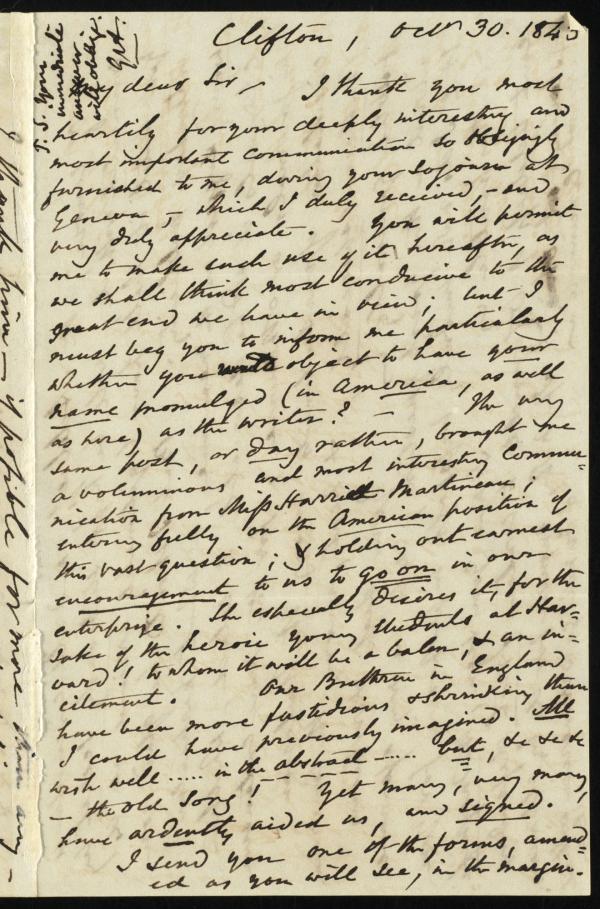 Clifton, Octr 30. 1845
My dear Sir, I thank you most
heartily for your deeply interesting and
most important communication so obligingly
furnished to me, during your sojourn at
Geneva, – which I duly received, – and
very duly appreciate. You will permit
me to make such use of it hereafter, as
we shall think most conducive to the
great end we have in view; but I
must beg you to inform me particularly
whether you object to have your
name promulged (in America, as well
as here) as the writer? – The very
same post, or day rather, brought me
a voluminous and most interesting commu=
nication from Miss Harriet Martineau;
entering fully on the American position of
this vast question; & holding out earnest
encouragement to us to go on in our
enterprize. She especially desires it, for the
sake of the heroic young Students at Har=
vard! to whom it will be a balm, & an in=
citement. Our Brethren in England
have been more fastidious & shrinking than
I could have previously imagined. All
wish well ..... in the abstract ..... but, &c &c &c
– the old song! Yet many, very many,
have ardently aided us, and signed.
I send you one of the forms, amend=
ed as you will see, in the margin.
P.S. Your
immediate
answer
will oblige.